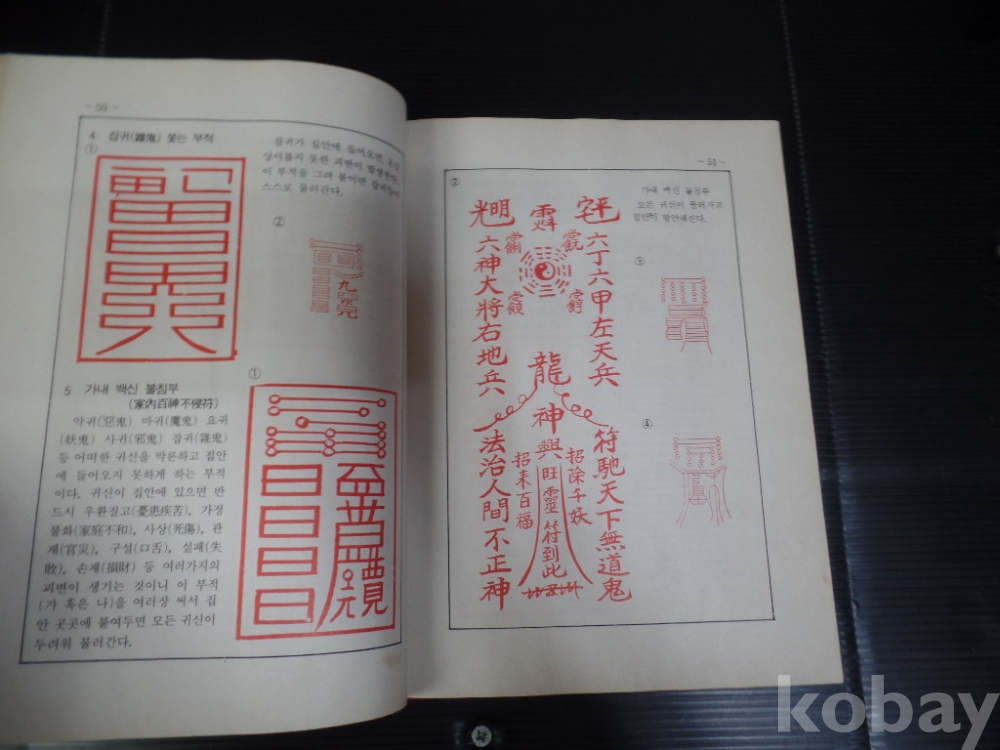 - 50 -
4 잡귀(雜鬼) 쫓는 부적
①
잡귀가 집안에 들어오면 온갖
상서롭지 못한 괴변이 발생한다.
이 부적을 그려 붙이면 잡귀들이
스스로 물러간다.
②
5 가내 백신 불침부
(家內百神不侵符)
악귀(惡鬼) 마귀(魔鬼) 요귀
(妖鬼) 사귀(邪鬼) 잡귀(雜鬼)
등 어떠한 귀신을 막론하고 집안
에 들어오지 못하게 하는 부적
이다. 귀신이 집안에 있으면 반
드시 우환질고(憂患疾苦), 가정
불화(家庭不和), 사상(死傷), 관
재(官災), 구설(口舌), 실패(失
敗), 손재(損財) 등 여러가지의
괴변이 생기는 것이니 이 부적
(가 혹은 나)을 여러장 써서 집
안 곳곳에 붙여두면 모든 귀신이
두려워 물러간다.
①
- 51 -
②
六丁六甲左天兵
六神大將右地兵
龍神
興旺靈符到此
招除千妖
招來百福
符馳天下無道鬼
法治人間不正神
가내 백신 불침부
모든 귀신이 물러가고
집안이 평안해진다.
③
④
kobay